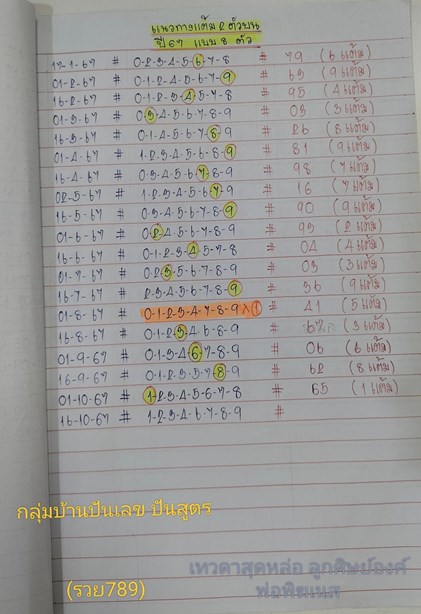 แนวทางแต้ม 2 ตัวบน
ปี 67 แบบ 8 ตัว
17-1-67 # 0-2-3-4-5-6-7-8 # 79 (6 แต้ม)
01-2-67 # 0-1-2-4-5-6-7-9 # 63 (9 แต้ม)
16-2-67 # 0-1-2-3-4-5-7-8 # 95 (4 แต้ม)
01-3-67 # 0-3-4-5-6-7-8-9 # 03 (3 แต้ม)
16-3-67 # 0-1-4-5-6-7-8-9 # 26 (8 แต้ม)
01-4-67 # 0-1-2-3-4-6-8-9 # 81 (9 แต้ม)
16-4-67 # 0-3-4-5-6-7-8-9 # 98 (7 แต้ม)
02-5-67 # 1-2-3-4-5-6-7-9 # 16 (7 แต้ม)
16-5-67 # 0-3-4-5-6-7-8-9 # 90 (9 แต้ม)
01-6-67 # 0-2-4-5-6-7-8-9 # 93 (2 แต้ม)
16-6-67 # 0-1-2-3-4-5-7-8 # 04 (4 แต้ม)
01-7-67 # 0-2-3-5-6-7-8-9 # 03 (3 แต้ม)
16-7-67 # 2-3-4-5-6-7-8-9 # 36 (9 แต้ม)
01-8-67 # 0-1-2-3-4-7-8-9 x # 41 (5 แต้ม)
16-8-67 # 0-1-2-3-4-6-8-9 # (3 แต้ม)
01-9-67 # 0-1-3-4-6-7-8-9 # 06 (6 แต้ม)
16-9-67 # 0-1-2-3-5-7-8-9 # 62 (8 แต้ม)
01-10-67 # 1-2-3-4-5-6-7-8 # 65 (1 แต้ม)
16-10-67 # 1-2-3-4-6-7-8-9 #
กลุ่มบ้านปันเลข ปันสูตร
เทวดาสุดหล่อ ลูกศิษย์องค์
พ่อพิฆเนส
(รวย789)